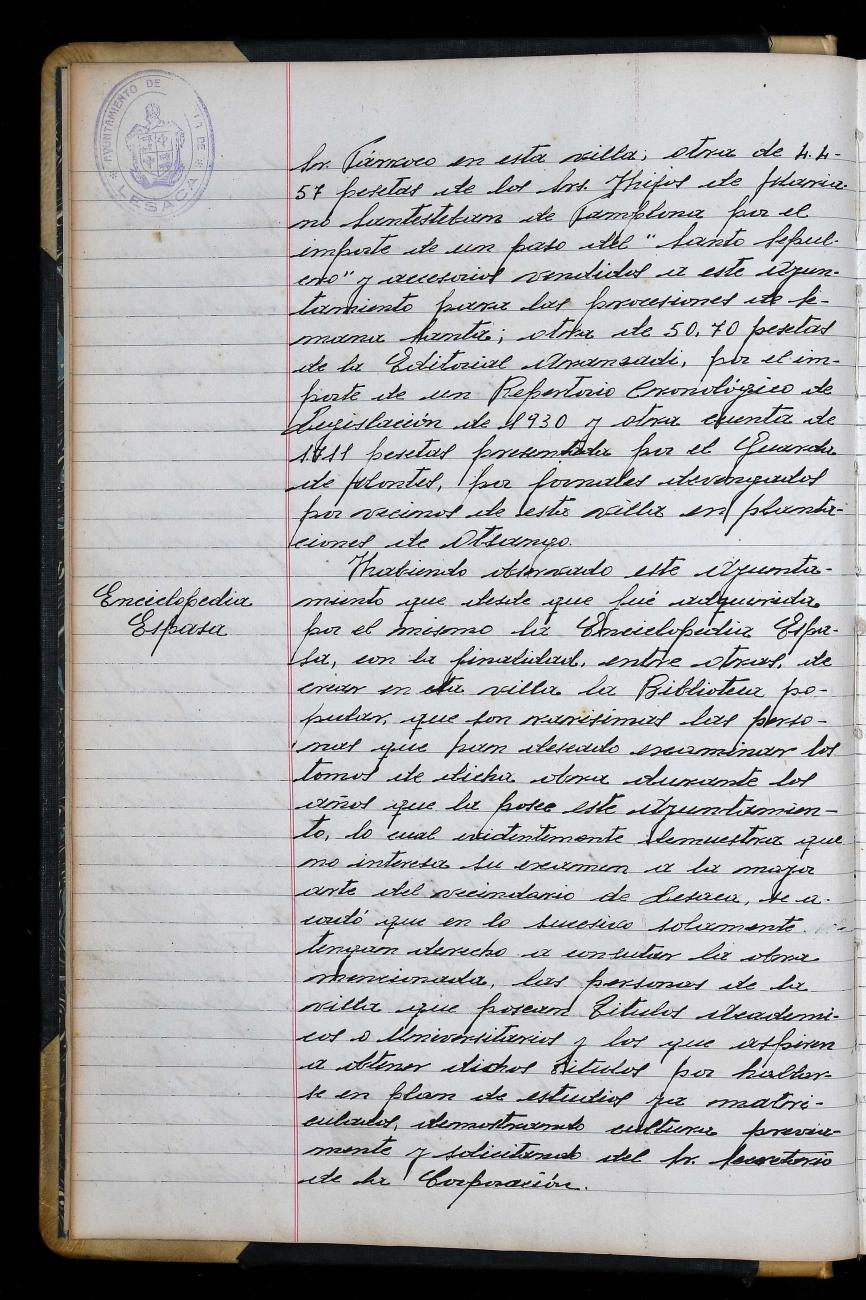 AYUNTAMIENTO DE LA VILLA DE
LESACA
Sr. Párroco en esta villa; otra de 44-
57 pesetas de los Srs. Hijos de Maria-
no Santesteban de Pamplona por el
importe de un paso del "Santo Sepul-
cro" y accesorios vendidos a este Ayun-
tamiento para las procesiones de Se-
mana Santa; otra de 50,70 pesetas
de la Editorial Aranzadi, por el im-
porte de un Repertorio Cronológico de
Legislación de 1930 y otra cuenta de
pesetas presentada por el Guarda
de Montes, por jornales devengados
por vecinos de esta villa en planta-
ciones de Otsango.
Habiendo observado este Ayunta-
Enciclopedia
Espasa
miento que desde que fué adquirida
por el mismo la Enciclopedia Espa-
sa, con la finalidad, entre otras, de
crear en esta villa la Biblioteca po-
pular, que son rarisimas las perso-
nas que han deseado examinar los
tomos de dicha obra durante los
años que la posee este Ayuntamien-
to, lo cual evidentemente demuestra que
no interesa su examen a la mayor
arte del vecindario de Lesaca, se a-
cordó que en lo sucesivo solamente
tengan derecho a consutar la obra
mencionada, las personas de la
villa que posean Titulos Academi-
cos o Universitarios y los que aspiren
a obtener dichos Titulos por hallar-
se en plan de estudios ya matri-
culados, demostrando cultura previa-
mente y solicitando del Sr. Secretario
de la Corporación.